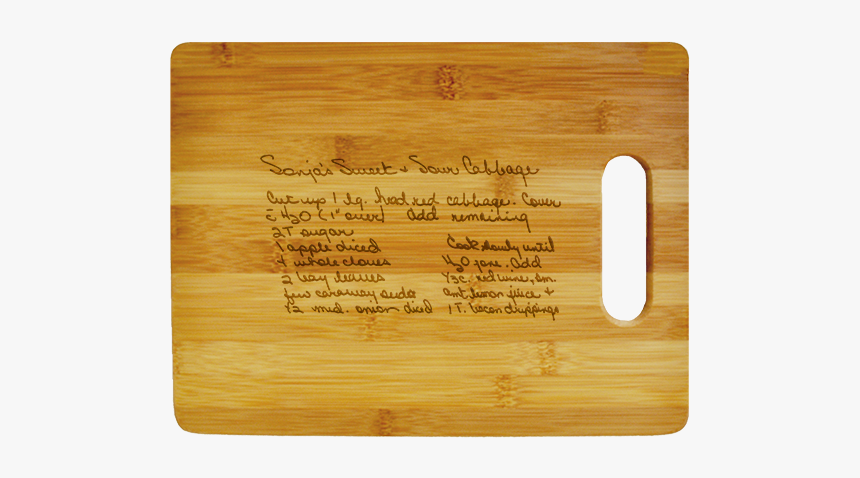 Sonja's Sweet + Sour Cabbage
Cut up 1 lg. head red cabbage. Cover
c̄ H2O (1" over) Add remaining
2T sugar
1 apple diced
4 whole cloves
2 bay leaves
few caraway seeds
1/2 med. onion diced
Cook slowly until
H2O gone. Add
1/3c. red wine, sm.
amt lemon juice +
1 T. bacon drippings